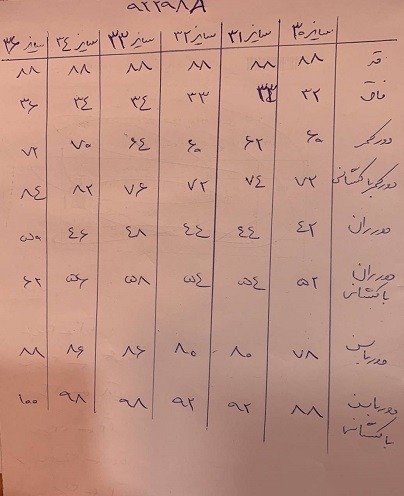 ۹۲۲۹۸A
سایز ۳۰ سایز ۳۱ سایز ۳۲ سایز ۳۳ سایز ۳۴ سایز ۳۶
قد ۸۸ ۸۸ ۸۸ ۸۸ ۸۸ ۸۸
فاق ۳۲ ۳۳ ۳۳ ۳۴ ۳۴ ۳۶
دور کمر ۶۰ ۶۲ ۶۰ ۶۴ ۷۰ ۷۲
دور کمر با کشسانی ۷۲ ۷۴ ۷۲ ۷۶ ۸۲ ۸۴
دور ران ۴۲ ۴۴ ۴۴ ۴۸ ۴۶ ۵۰
دور ران با کشسانی ۵۲ ۵۴ ۵۴ ۵۸ ۵۶ ۶۲
دور باسن ۷۸ ۸۰ ۸۰ ۸۶ ۸۶ ۸۸
دور باسن با کشسانی ۸۸ ۹۲ ۹۲ ۹۸ ۹۸ ۱۰۰